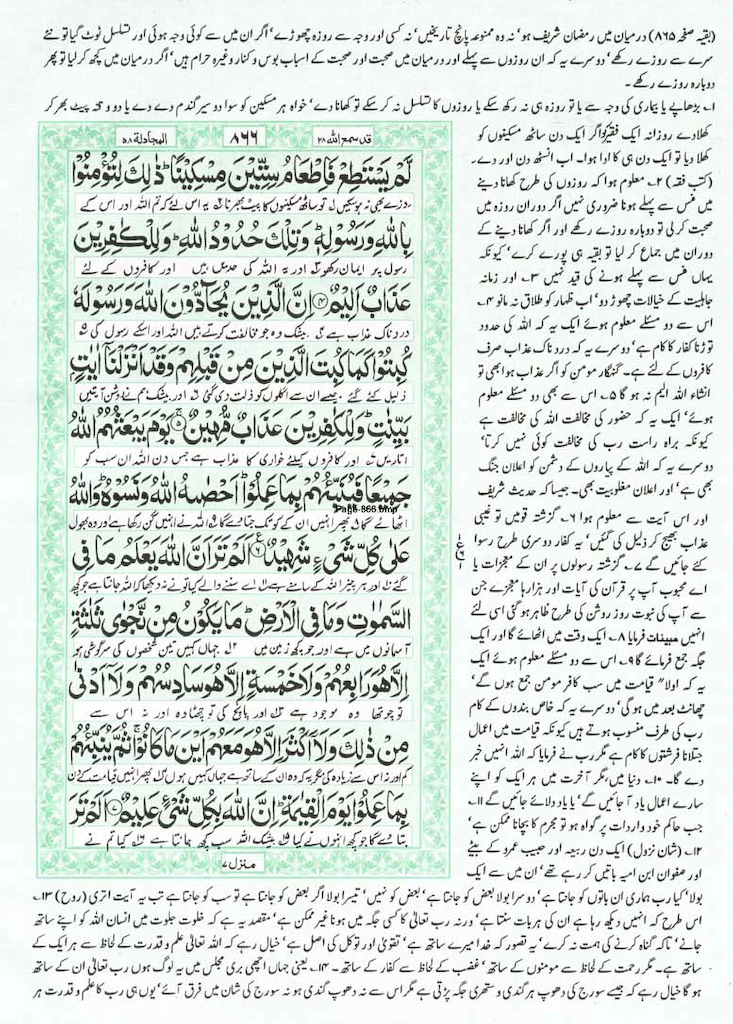 (بقیہ صفحہ ۸۶۵) درمیان میں رمضان شریف ہو' نہ وہ ممنوعہ پانچ تاریخیں' نہ کسی اور وجہ سے روزہ چھوڑے' اگر ان میں سے کوئی وجہ ہوئی اور تسلسل ٹوٹ گیا تو نئے
سرے سے روزے رکھے' دوسرے یہ کہ ان روزوں سے پہلے اور درمیان میں صحت اور صحبت کے اسباب بوس و کنار وغیرہ حرام ہیں' اگر درمیان میں کچھ کر لیا تو پھر
دوبارہ روزے رکھے۔
۱۔ بڑھاپے یا بیماری کی وجہ سے یا تو روزہ ہی نہ رکھ سکے یا روزوں کا تسلسل نہ کر سکے تو کھانا دے' خواہ ہر مسکین کو سوا دو سیر گندم دے دے یا دو وقتہ پیٹ بھر کر
کھلا دے روزانہ ایک فقیر کو اگر ایک دن ساٹھ مسکینوں کو
کھلا دیا تو ایک دن ہی کا ادا ہوا۔ اب انسٹھ دن اور دے۔
(کتب فقہ) ۲۔ معلوم ہوا کہ روزوں کی طرح کھانا دینے
میں مس سے پہلے ہونا ضروری نہیں اگر دوران روزہ میں
صحبت کر لی تو دوبارہ روزے رکھے اور اگر کھانا دینے کے
دوران میں جماع کر لیا تو بقیہ ہی پورے کرے' کیونکہ
یہاں مس سے پہلے ہونے کی قید نہیں ۳۔ اور زمانہ
جاہلیت کے خیالات چھوڑ دو' اب ظہار کو طلاق نہ مانو ۴۔
اس سے دو مسئلے معلوم ہوئے ایک یہ کہ اللہ کی حدود
توڑنا کفار کا کام ہے' دوسرے یہ کہ دردناک عذاب صرف
کافروں کے لئے ہے۔ گنہگار مومن کو اگر عذاب ہوا بھی تو
انشاء اللہ الیم نہ ہو گا ۵۔ اس سے بھی دو مسئلے معلوم
ہوئے' ایک یہ کہ حضور کی مخالفت اللہ کی مخالفت ہے
کیونکہ براہ راست رب کی مخالفت کوئی نہیں کرتا'
دوسرے یہ کہ اللہ کے پیاروں کے دشمن کو اعلان جنگ
بھی ہے' اور اعلان مغلوبیت بھی۔ جیسا کہ حدیث شریف
اور اس آیت سے معلوم ہوا ۶۔ گزشتہ قومیں تو غیبی
عذاب بھیج کر ذلیل کی گئیں' یہ کفار دوسری طرح رسوا
کئے جائیں گے ۷۔ گزشتہ رسولوں پر ان کے معجزات یا
اے محبوب آپ پر قرآن کی آیات اور ہزارہا معجزے جن
سے آپ کی نبوت روز روشن کی طرح ظاہر ہو گئی اسی لئے
انہیں مبینات فرمایا ۸۔ ایک وقت میں اٹھائے گا اور ایک
جگہ جمع فرمائے گا ۹۔ اس سے دو مسئلے معلوم ہوئے ایک
یہ کہ اولاً" قیامت میں سب کافر مومن جمع ہوں گے'
چھانٹ بعد میں ہو گی' دوسرے یہ کہ خاص بندوں کے کام
رب کی طرف منسوب ہوتے ہیں کیونکہ قیامت میں اعمال
جتلانا فرشتوں کا کام ہے مگر رب نے فرمایا کہ اللہ انہیں خبر
دے گا۔ ۱۰۔ دنیا میں' مگر آخرت میں ہر ایک کو اپنے
سارے اعمال یاد آ جائیں گے' یا یاد دلائے جائیں گے ۱۱۔
جب حاکم خود واردات پر گواہ ہو تو مجرم کا بچنا ناممکن ہے'
۱۲۔ (شان نزول) ایک دن ربیعہ اور حبیب عمرو کے بیٹے
اور صفوان ابن امیہ باتیں کر رہے تھے' ان میں سے ایک
قد سمع اللہ ۲۸
۸۶۶
المجادلۃ ۵۸
لَّمْ يَسْتَطِعْ فَاِطْعَامُ سِتِّيْنَ مِسْكِيْنًا ؕ ذٰلِكَ لِتُؤْمِنُوْا
روزے بھی نہ ہو سکیں تو ساٹھ مسکینوں کا پیٹ بھرنا یہ اس لئے کہ تم اللہ اور اس کے
بِاللّٰهِ وَرَسُوْلِهٖ ؕ وَتِلْكَ حُدُوْدُ اللّٰهِ ؕ وَلِلْكٰفِرِيْنَ
رسول پر ایمان رکھو اور یہ اللہ کی حدیں ہیں اور کافروں کے لئے
عَذَابٌ اَلِيْمٌ ۴ اِنَّ الَّذِيْنَ يُحَآدُّوْنَ اللّٰهَ وَرَسُوْلَهٗ
دردناک عذاب ہے بیشک وہ جو مخالفت کرتے ہیں اللہ اور اسکے رسول کی
كُبِتُوْا كَمَا كُبِتَ الَّذِيْنَ مِنْ قَبْلِهِمْ وَقَدْ اَنْزَلْنَآ اٰيٰتٍۭ
ذلیل کئے گئے جیسے ان سے اگلوں کو ذلت دی گئی اور بیشک ہم نے روشن آیتیں
بَيِّنٰتٍ ؕ وَلِلْكٰفِرِيْنَ عَذَابٌ مُّهِيْنٌ ۵ يَوْمَ يَبْعَثُهُمُ اللّٰهُ
اتاریں اور کافروں کیلئے خواری کا عذاب ہے جس دن اللہ ان سب کو
جَمِيْعًا فَيُنَبِّئُهُمْ بِمَا عَمِلُوْا ؕ اَحْصٰىهُ اللّٰهُ وَنَسُوْهُ ؕ وَاللّٰهُ
Page-866.bmp
اٹھائے گا پھر انہیں ان کے کوتک جتا دے گا اللہ نے انہیں گن رکھا ہے اور وہ بھول
عَلٰى كُلِّ شَيْءٍ شَهِيْدٌ ۶ اَلَمْ تَرَ اَنَّ اللّٰهَ يَعْلَمُ مَا فِى
گئے اور ہر چیز اللہ کے سامنے ہے اے سننے والے کیا تو نے نہ دیکھا کہ اللہ جانتا ہے جو کچھ
السَّمٰوٰتِ وَمَا فِى الْاَرْضِ ؕ مَا يَكُوْنُ مِنْ نَّجْوٰى ثَلٰثَةٍ
آسمانوں میں ہے اور جو کچھ زمین میں جہاں کہیں تین شخصوں کی سرگوشی ہو
اِلَّا هُوَ رَابِعُهُمْ وَلَا خَمْسَةٍ اِلَّا هُوَ سَادِسُهُمْ وَلَاۤ اَدْنٰى
تو چوتھا وہ موجود ہے اور پانچ کی تو چھٹا وہ اور نہ اس سے
مِنْ ذٰلِكَ وَلَاۤ اَكْثَرَ اِلَّا هُوَ مَعَهُمْ اَيْنَ مَا كَانُوْا ۚ ثُمَّ يُنَبِّئُهُمْ
کم اور نہ اس سے زیادہ کی مگر یہ کہ وہ ان کے ساتھ ہے جہاں کہیں ہوں پھر انہیں قیامت کے دن
بِمَا عَمِلُوْا يَوْمَ الْقِيٰمَةِ ؕ اِنَّ اللّٰهَ بِكُلِّ شَيْءٍ عَلِيْمٌ ۷ اَلَمْ تَرَ
بتا دے گا جو کچھ انہوں نے کیا بیشک اللہ سب کچھ جانتا ہے کیا تم نے
منزل ۷
بولا' کیا رب ہماری ان باتوں کو جانتا ہے' دوسرا بولا بعض کو جانتا ہے' بعض کو نہیں' تیسرا بولا اگر بعض کو جانتا ہے تو سب کو جانتا ہے تب یہ آیت اتری (روح) ۱۳۔
اس طرح کہ انہیں دیکھ رہا ہے ان کی ہر بات سنتا ہے' ورنہ رب تعالیٰ کا کسی جگہ میں ہونا غیر ممکن ہے' مقصد یہ ہے کہ خلوت جلوت میں انسان اللہ کو اپنے ساتھ
جانے' تاکہ گناہ کرنے کی ہمت نہ کرے' یہ تصور کہ خدا میرے ساتھ ہے' تقویٰ اور توکل کی اصل ہے' خیال رہے کہ اللہ تعالیٰ علم و قدرت کے لحاظ سے ہر ایک کے
ساتھ ہے۔ مگر رحمت کے لحاظ سے مومنوں کے ساتھ' غضب کے لحاظ سے کفار کے ساتھ۔ ۱۴۔ یعنی جہاں اچھی بری مجلس میں یہ لوگ ہوں رب تعالیٰ ان کے ساتھ
ہو گا خیال رہے کہ جیسے سورج کی دھوپ ہر گندی و ستھری جگہ پڑتی ہے مگر اس سے نہ دھوپ گندی ہو نہ سورج کی شان میں فرق آئے' یوں ہی رب کا علم و قدرت ہر